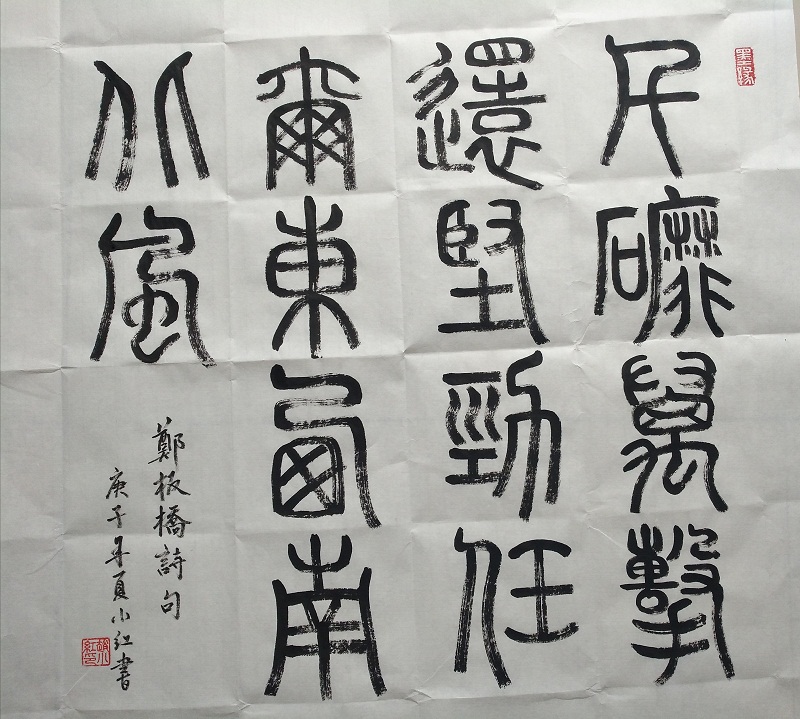 千䃺萬擊
還堅勁任
爾東西南
北風
鄭板橋詩句
庚子年夏小红書
墨缘